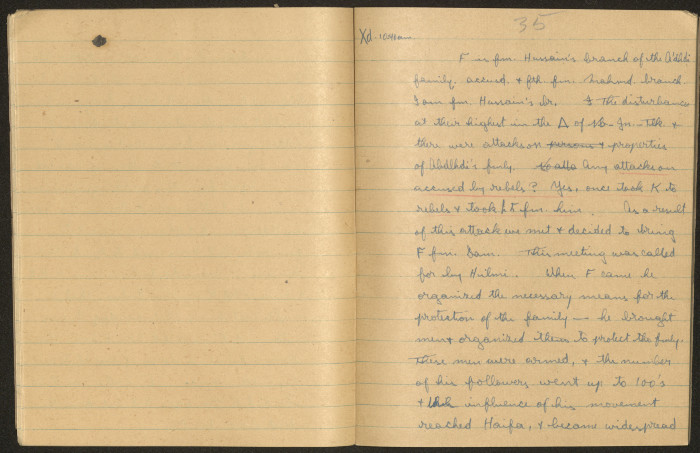 35
Xd. 10.40 am
F is fm. Hussain's branch of the A'alhdi
family. accused. & fth. fm. Mahmd branch.
I am fm. Hassain's br. The disturbances
at their highest in the Δ of Jn. Tlk &
there were attacks on persons & properties
of Abdlhdi's fmly. Any attacks on
accused by rebels? Yes, once took K to
rebels & took fm him. As a result
of this attack we met & decided to bring
F fm. Dam. This meeting was called
for by Hilmi. When F came he
organized the necessary means for the
protection of the family — he brought
men & organized them to protect the fmly.
These men were armed, & the number
of his followers went up to 100's
& influence of his movement
reached Haifa, & became widespread